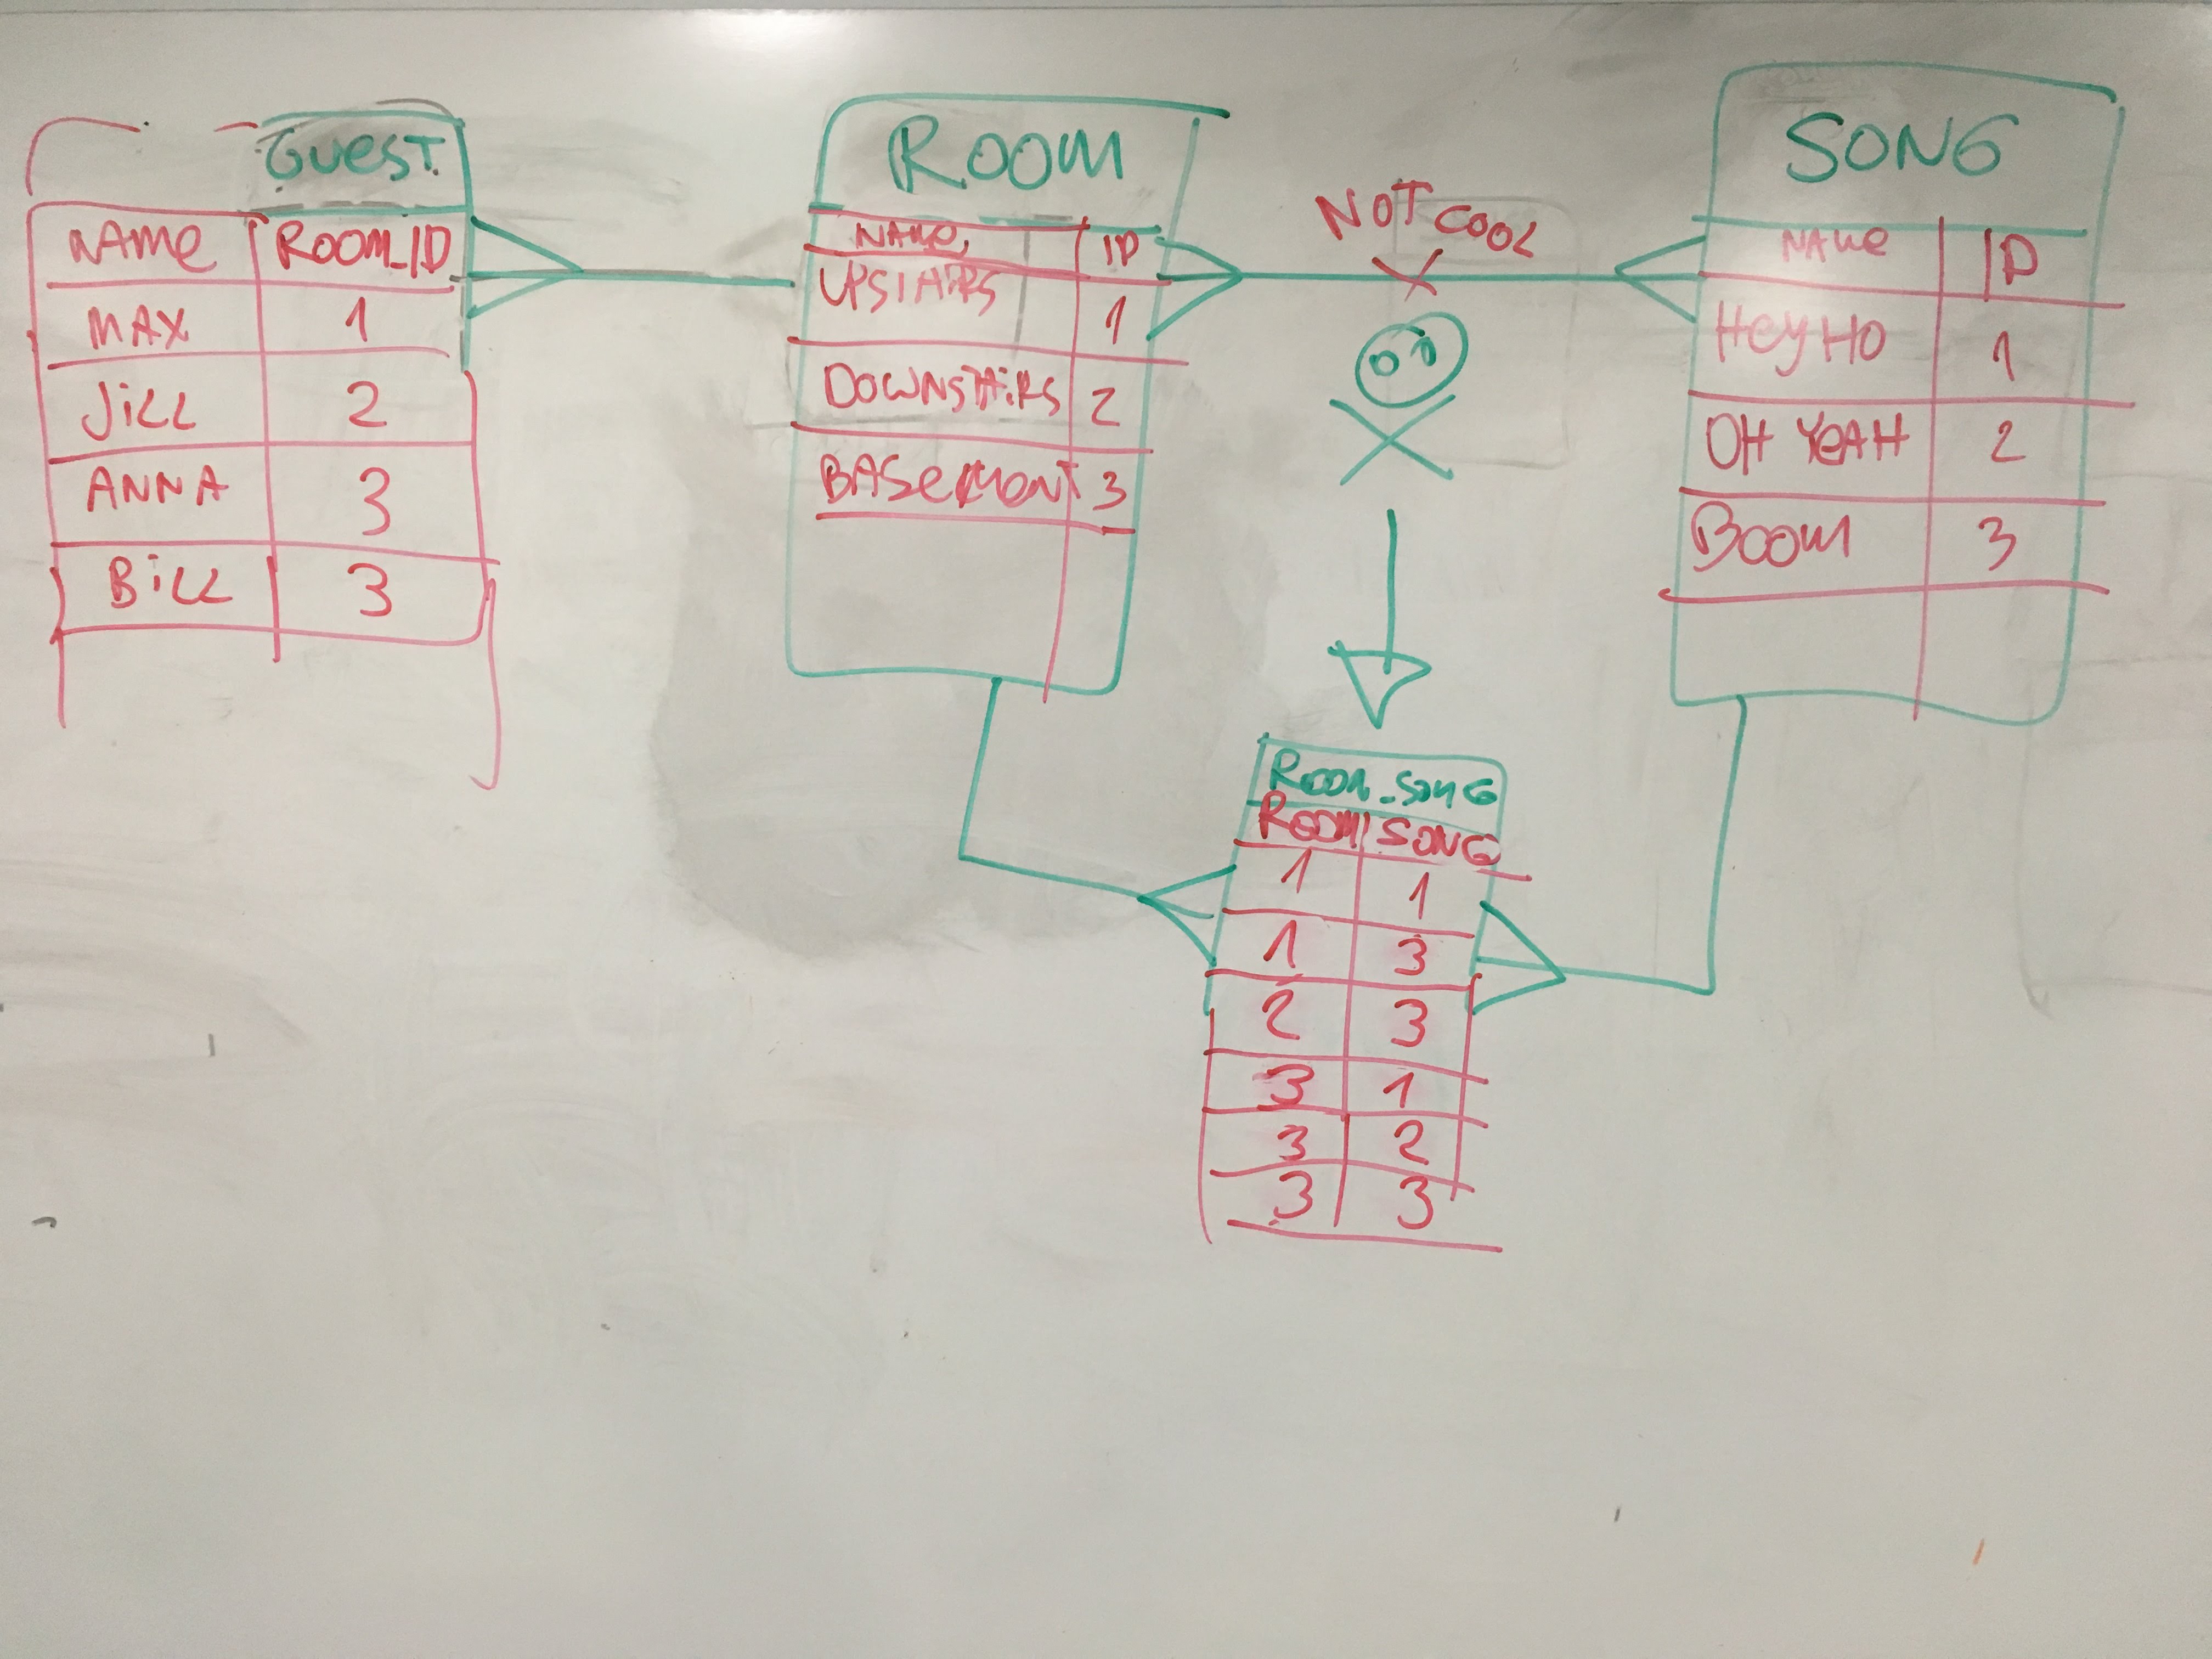 GUEST
NAME ROOM_ID
MAX 1
JILL 2
ANNA 3
BILL 3
ROOM
NAME ID
UPSTAIRS 1
DOWNSTAIRS 2
BASEMENT 3
NOT COOL
SONG
NAME ID
HEY HO 1
OH YEAH 2
BOOM 3
ROOM_SONG
ROOM SONG
1 1
1 3
2 3
3 1
3 2
3 3